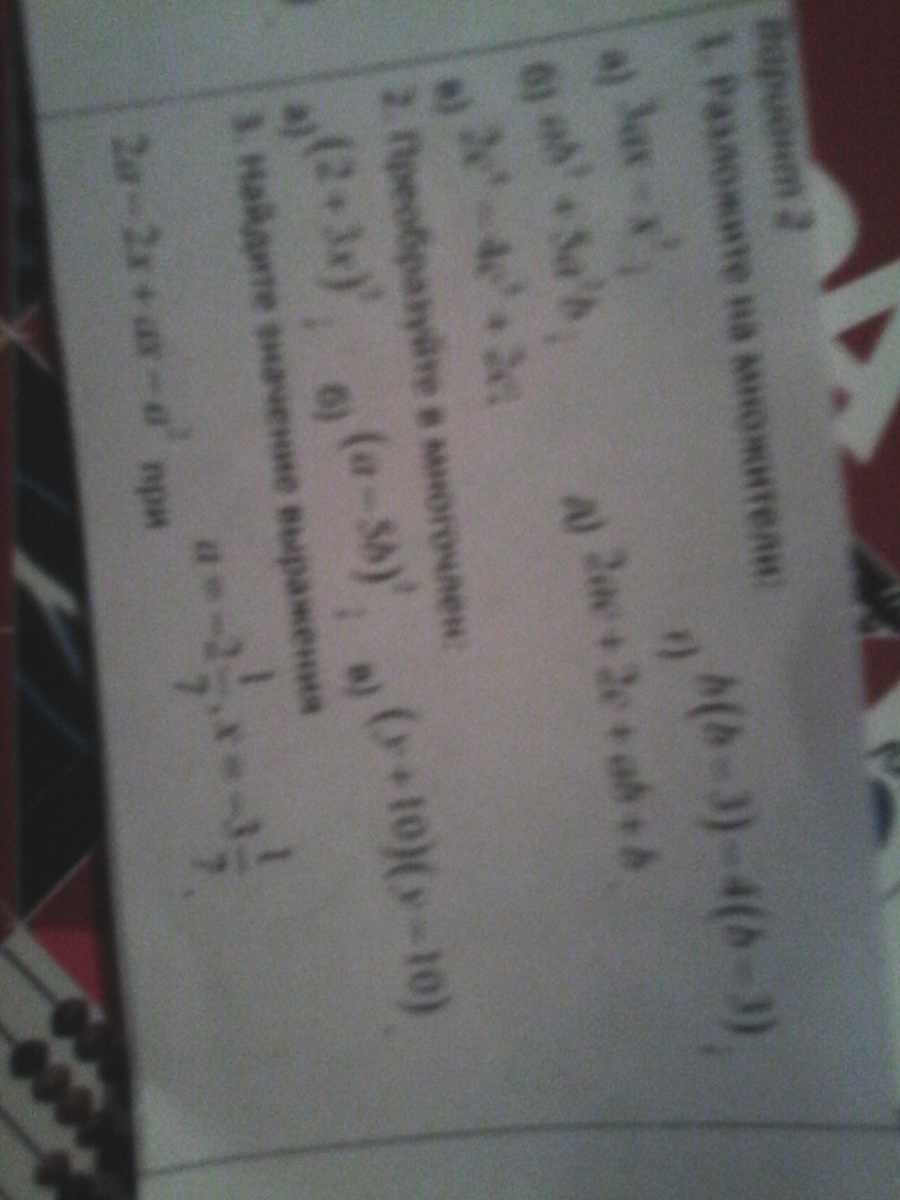 Вариант 2
1. Разложите на множители:
а) 3ax − x²;
б) ab² + 5a²b;
в) 2c⁴ − 4c³ + 2c²;
г) b(b − 3) − 4(b − 3);
д) 2ac + 2c + ab + b.
2. Преобразуйте в многочлен:
а) (2 + 3x)²; б) (a − 5b)²; в) (y + 10)(y − 10)
3. Найдите значение выражения
2a − 2x + ax − a² при a = −2 1/7, x = −3 1/7.